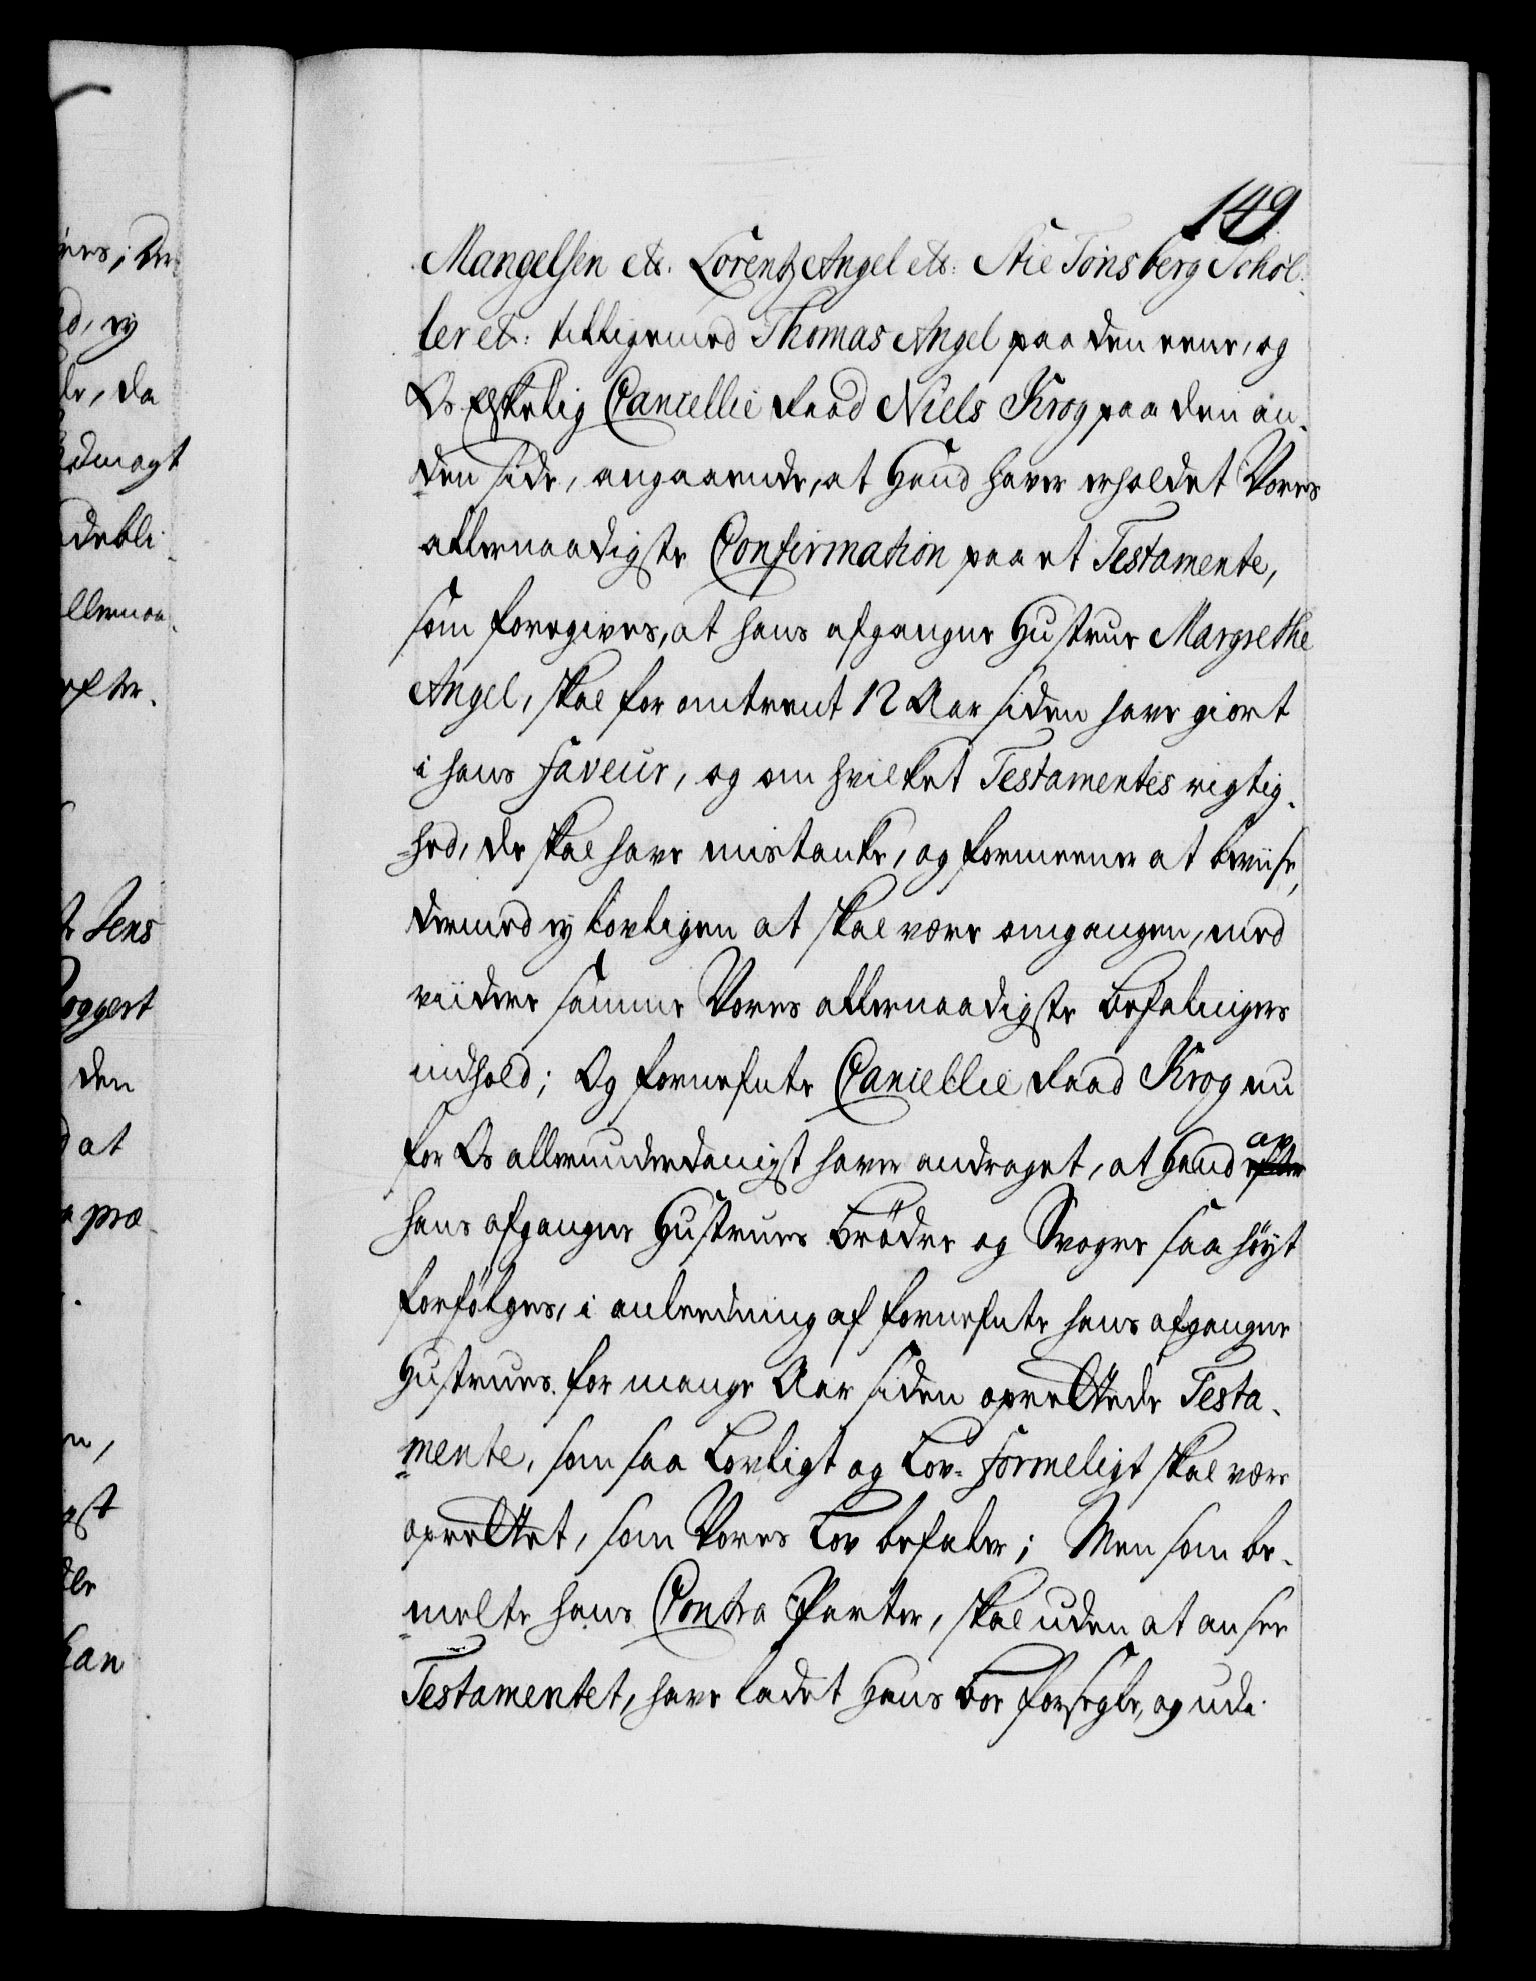 149
Mangelsen etc. Lorentz Angel etc: Stie Tønsberg Schøl-
ler etc: tilligemed Thomas Angel paa den eene, og
Os Elskelig Cancellie Raad Niels Krog paa den an-
den side, angaaende, at hand haver erholdet Vores
allernaadigste Confirmation paa et Testamente,
som foregives, at hans afgangne Hustrue Margrethe
Angel, skal for omtrent 12 Aar siden have giort
i hans Faveur, og om hvilket Testamentes rigtig-
hed, de skal have mistanke, og formeener at beviise,
dermed ej lovligen at skal være omgangen, med
viidere samme Vores allernaadigste befalingers
indhold; Og fornefnte Cancellie Raad Krog nu
for Os allerunderdanigst haver andraget, at hand efter
av
hans afgangne Hustrues Brødre og Svogre saa høyt
forfølges, i anleedning af fornefnte hans afgangne
Hustrues for mange Aar siden oprettede Testa-
mente, som saa Lovligt og Lov-formeligt skal være
oprettet, som Vores Lov befaler; Men som be-
melte hans Contra Parter, skal uden at ansee
Testamentet, have ladet hans boe forsegle, og udi
ej
da
Jens
den
at
præ-